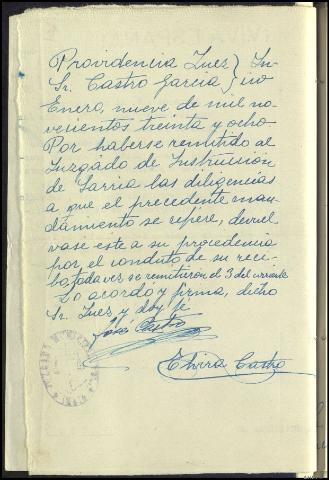 Providencia Juez } In-
Sr. Castro Garcia } cio
Enero, nueve de mil no-
vecientos treinta y ocho
Por haberse remitido al
Juzgado de Instrucción
de Sarria las diligencias
a que el precedente man-
damiento se refiere, devuel-
vase este a su procedencia
por el conducto de su reci-
bo, toda vez se remitieron el 3 del corriente
Lo acordó y firma, dicho
Sr. Juez y doy fé
Castro
Elvira Castro